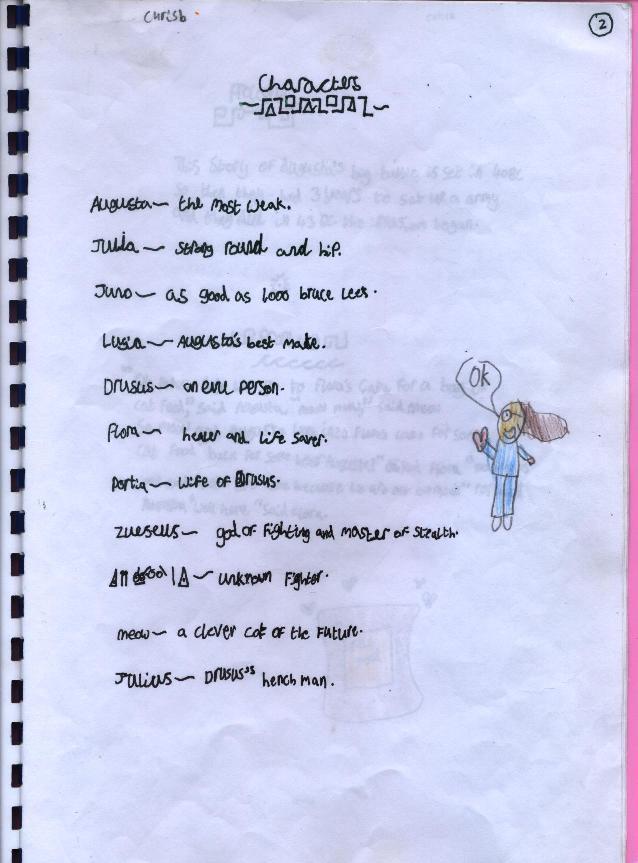 Chrisb
2
Characters
Augusta~ the most weak.
Julia ~ strong round and hip.
Juno~ as good as 1000 bruce lees.
Lusia~ Augusta's best mate.
Drusus~ an evil person.
Flora~ healer and life saver.
Portia~ wife of Drusus.
Zueseus~ god of fighting and master of stealth.
~ unknown fighter.
meow~ a clever cat of the future.
Julius~ Drusus's hench man.
Ok